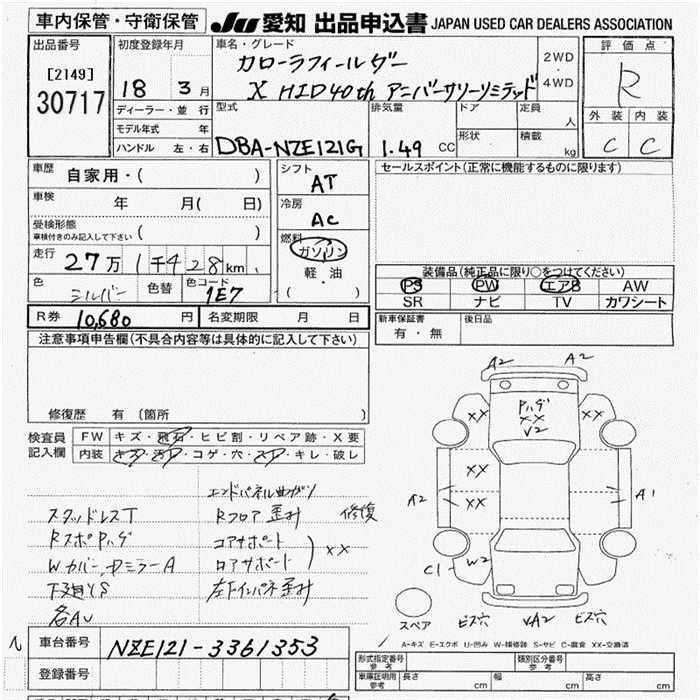 車内保管・守衛保管 JU 愛知 出品申込書 JAPAN USED CAR DEALERS ASSOCIATION
出品番号 初度登録年月 車名・グレード 評価点
[2149] 30717
18 3月
カローラフィールダー 2WD
X HID40th アニバーサリーリミテッド ・4WD
R
ディーラー・並行
モデル年式 年
ハンドル 左・右
型式 排気量 ドア 定員 人
DBA-NZE121G 1.49 CC 形状 積載 kg
外装 内装
C C
車歴 自家用・( )
車検 年 月( 日)
受検形態
車検付きのみ記入して下さい ( )
走行 27万1千428km
色 シルバー 色替 色コード 1E7
シフト AT
冷房 AC
燃料 ガソリン
軽・油
( ・ )
セールスポイント(正常に機能するものに限ります)
装備品(純正品に限り○をつけてください)
PS PW エアB AW
SR ナビ TV カワシート
R券 10,680 円 名変期限 月 日
新車保証書 有・無 後日品
注意事項申告欄(不具合内容等は具体的に記入して下さい)
修復歴 有 (箇所 )
検査員 記入欄
FW キズ・飛石・ヒビ割・リペア跡・X要
内装 キズ・汚れ・コゲ・穴・スレ・キレ・破レ
エンドパネル曲ガリ
スタッドレスT Rフロア歪ミ 修復
RスポPハゲ コアサポート
Wカバー、Dミラー A ロアサポート XX
下廻り S 左下インパネ歪ミ
各AU
A2 A2
XX Pハゲ XX V2
XX
A2 XX A1
C1 W2
スペア ビス穴 VA2 ビス穴
A-キズ E-エクボ U-凹み W-補修跡 S-サビ C-腐食 XX-交換済
車台番号 NZE121-3361353
登録番号
形式指定番号 参考 類別区分番号 参考
車庫証明用 参考 長さ cm 幅 cm 高さ cm